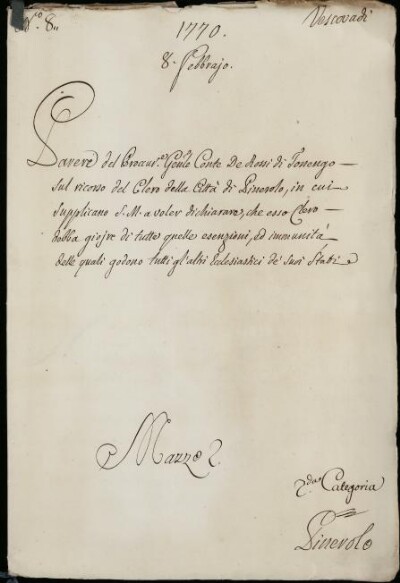 N.º 8.
Vescovadi
1770.
8. Febbrajo.
Parere del Procur.e Gen.le Conte De Rossi di Tonengo
sul ricorso del Clero della Città di Pinerolo, in cui
supplicano S. M. a voler dichiarare, che esso Clero
debba gioire di tutte quelle esenzioni, ed immunità
delle quali godono tutti gl'altri Eclesiastici de' suoi Stati
Mazzo 2.
2.da Categoria
Pinerolo